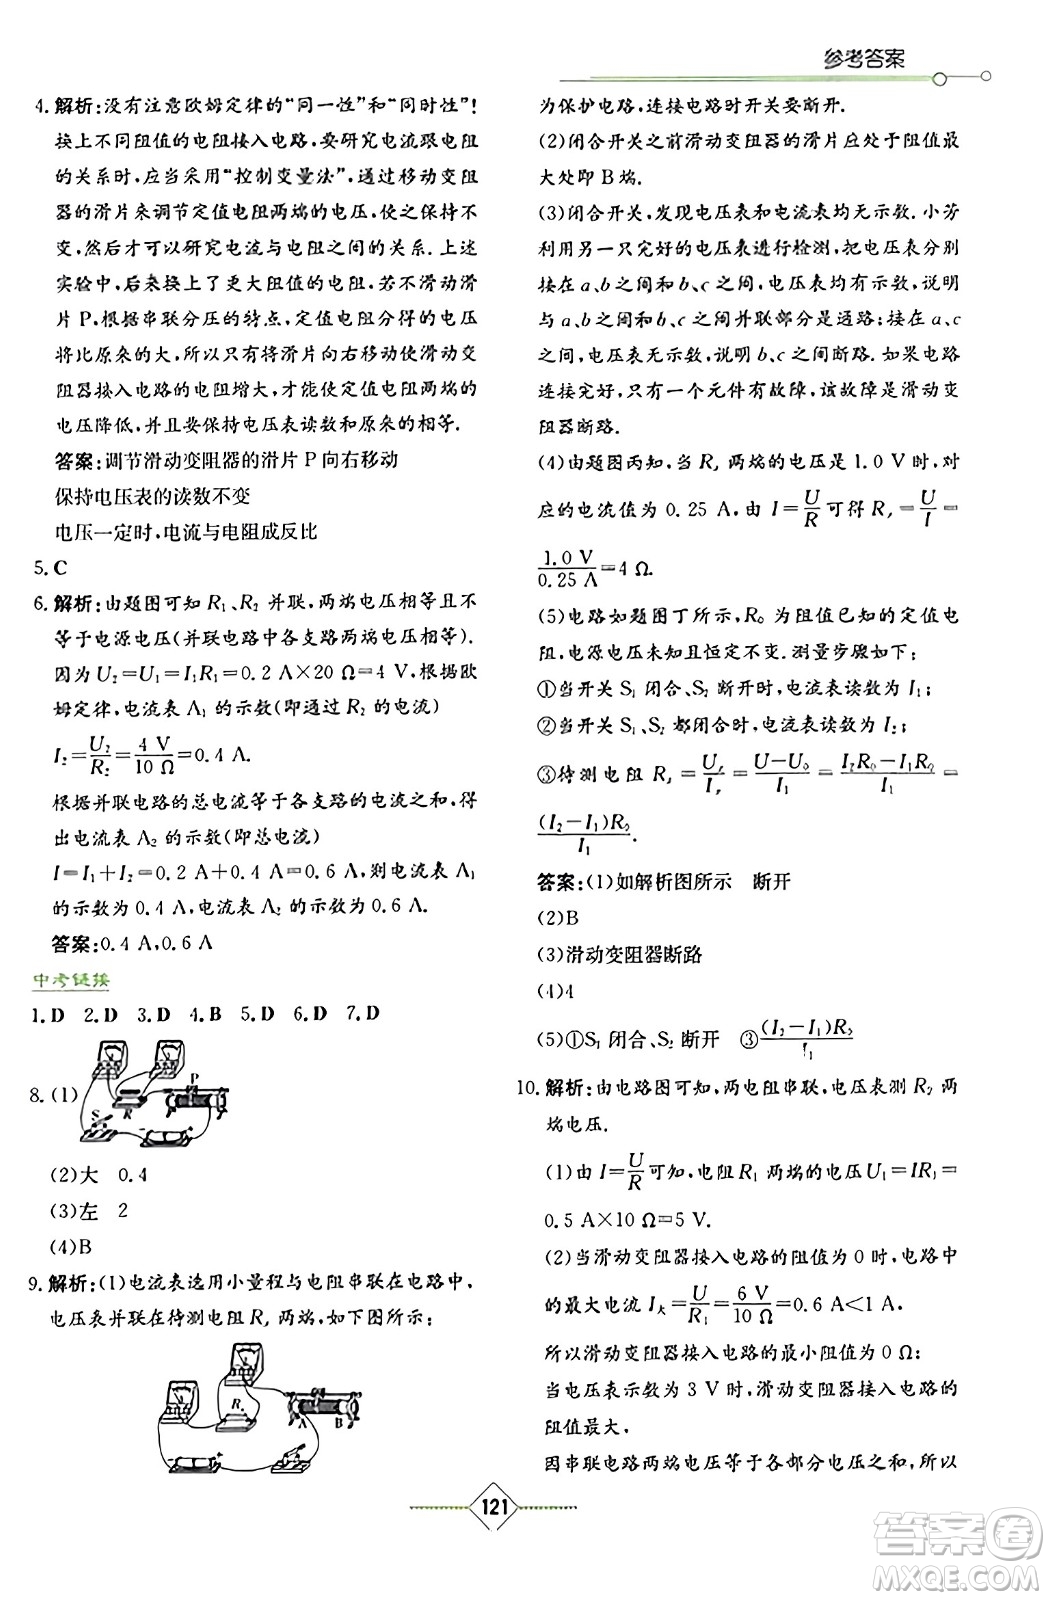 参考答案
4. 解析:没有注意欧姆定律的“同一性”和“同时性”!
换上不同阻值的电阻接入电路,要研究电流跟电阻
的关系时,应当采用“控制变量法”,通过移动变阻
器的滑片来调节定值电阻两端的电压,使之保持不
变,然后才可以研究电流与电阻之间的关系. 上述
实验中,接入了更大阻值的电阻,若不移动滑
片 P,根据串联分压的特点,定值电阻分得的电压
将比原来的大,所以,只有将滑片向右移动,使滑动变
阻器接入电路的电阻增大,才能使定值电阻两端的
电压降低,并且要保持电压表读数和原来的相等.
答案:调节滑动变阻器的滑片 P 向右移动
保持电压表的读数不变
电压一定时,电流与电阻成反比
5. C
6. 解析:由题图可知 R₁、R₂ 并联,两端电压相等且不
等于电源电压(并联电路中各支路两端电压相等).
因为 U₂=U₁=I₁R₁=0.2 A×20 Ω=4 V,根据欧
姆定律,电流表 A₁ 的示数(即通过 R₂ 的电流)
I₂=U₂/R₂=4 V/10 Ω=0.4 A.
根据并联电路的总电流等于各支路的电流之和,得
出电流表 A₂ 的示数(即总电流)
I=I₁+I₂=0.2 A+0.4 A=0.6 A,则电流表 A₁
的示数为 0.4 A,电流表 A₂ 的示数为 0.6 A.
答案:0.4 A,0.6 A
中考链接
1. D 2. D 3. D 4. B 5. D 6. D 7. D
8. (1)
P
S
R
(2)大 0.4
(3)左 2
(4)B
9. 解析:(1)电流表选用小量程与电阻串联在电路中,
电压表并联在待测电阻 Rₓ 两端,如下图所示:
Rₓ
A B
为保护电路,连接电路时开关要断开.
(2)闭合开关之前滑动变阻器的滑片应处于阻值最
大处即 B 端.
(3)闭合开关,发现电压表和电流表均无示数. 小芳
利用另一只完好的电压表进行检测,把电压表分别
接在 a、b 之间和 b、c 之间,电压表均有示数,说明
与 a、b 之间和 b、c 之间并联部分是通路;接在 a、c
之间,电压表无示数,说明 b、c 之间断路. 如果电路
连接完好,只有一个元件有故障,该故障是滑动变
阻器断路.
(4)由题图丙知,当 Rₓ 两端的电压是 1.0 V 时,对
应的电流值为 0.25 A,由 I=U/R 可得 Rₓ=U/I=
1.0 V/0.25 A=4 Ω.
(5)电路如题图丁所示,R₀ 为阻值已知的定值电
阻,电源电压未知且恒定不变. 测量步骤如下:
①当开关 S₁ 闭合、S₂ 断开时,电流表读数为 I₁;
②当开关 S₁、S₂ 都闭合时,电流表读数为 I₂;
③待测电阻 Rₓ=Uₓ/Iₓ=(U-U₀)/I₁=(I₂R₀-I₁R₀)/I₁=
(I₂-I₁)R₀/I₁.
答案:(1)如解析图所示 断开
(2)B
(3)滑动变阻器断路
(4)4
(5)①S₁ 闭合、S₂ 断开 ③(I₂-I₁)R₀/I₁
10. 解析:由电路图可知,两电阻串联,电压表测 R₂ 两
端电压.
(1)由 I=U/R 可知,电阻 R₁ 两端的电压 U₁=IR₁=
0.5 A×10 Ω=5 V.
(2)当滑动变阻器接入电路的阻值为 0 时,电路中
的最大电流 I大=U/R₁=6 V/10 Ω=0.6 A<1 A.
所以滑动变阻器接入电路的最小阻值为 0 Ω;
当电压表示数为 3 V 时,滑动变阻器接入电路的
阻值最大.
因串联电路两端电压等于各部分电压之和,所以
121
答案圈
MXQE.COM